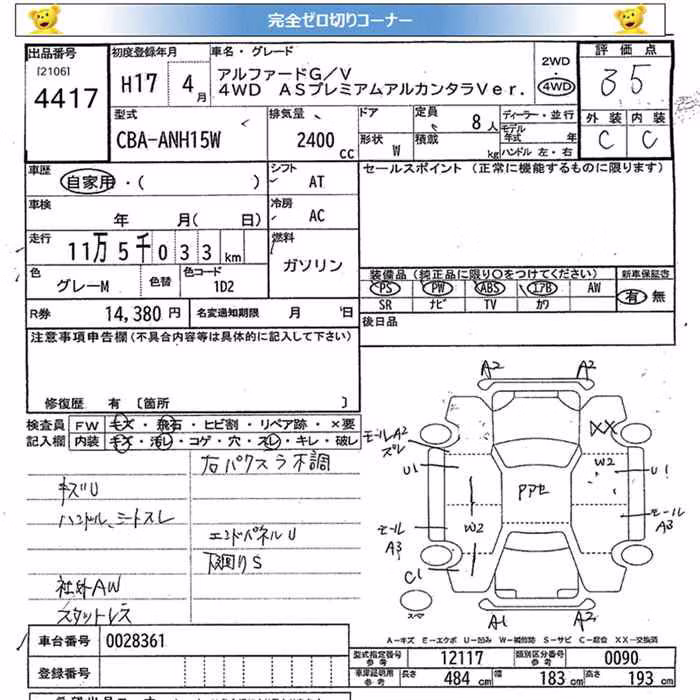 完全ゼロ切りコーナー
出品番号 [2106] 4417
初度登録年月 H17 4月
車名・グレード
アルファードG/V
4WD ASプレミアムアルカンタラVer.
2WD・4WD
評価点 35
外装 内装
C C
型式 CBA-ANH15W
排気量 2400cc
ドア
形状 W
定員 8人
積載 kg
ディーラー・並行
モデル年式 年
ハンドル 左・右
車歴 自家用・( )
シフト AT
セールスポイント (正常に機能するものに限ります)
車検 年 月( 日)
冷房 AC
走行 11万5千033km
燃料 ガソリン
色 グレーM 色替 色コード 1D2
装備品 (純正品に限り○をつけてください) 新車保証書
PS PW ABS エアB AW 有 無
SR ナビ TV カワ
R券 14,380円 名変通知期限 月 日
後日品
注意事項申告欄 (不具合内容等は具体的に記入して下さい)
修復歴 有 〔箇所 〕
検査員記入欄 FW キズ・飛石・ヒビ割・リペア跡・×要
内装 キズ・汚レ・コゲ・穴・スレ・キレ・破レ
右パワスラ不調
キズU
ハンドル、シートスレ
エンドパネルU
下廻りS
社外AW
スタットレス
A2 A2
モールA2
ズレ
XX
U1 W2 U1
Pアセ
モール
A3
W2
モール
A3
C1
スペア
A1 A2
A−キズ E−エクボ U−凹み W−補修跡 S−サビ C−腐蝕 XX−交換済
車台番号 0028361
型式指定番号 参考 12117 類別区分番号 参考 0090
登録番号
車庫証明用 参考 長さ 484cm 幅 183cm 高さ 193cm
希望出品コーナー